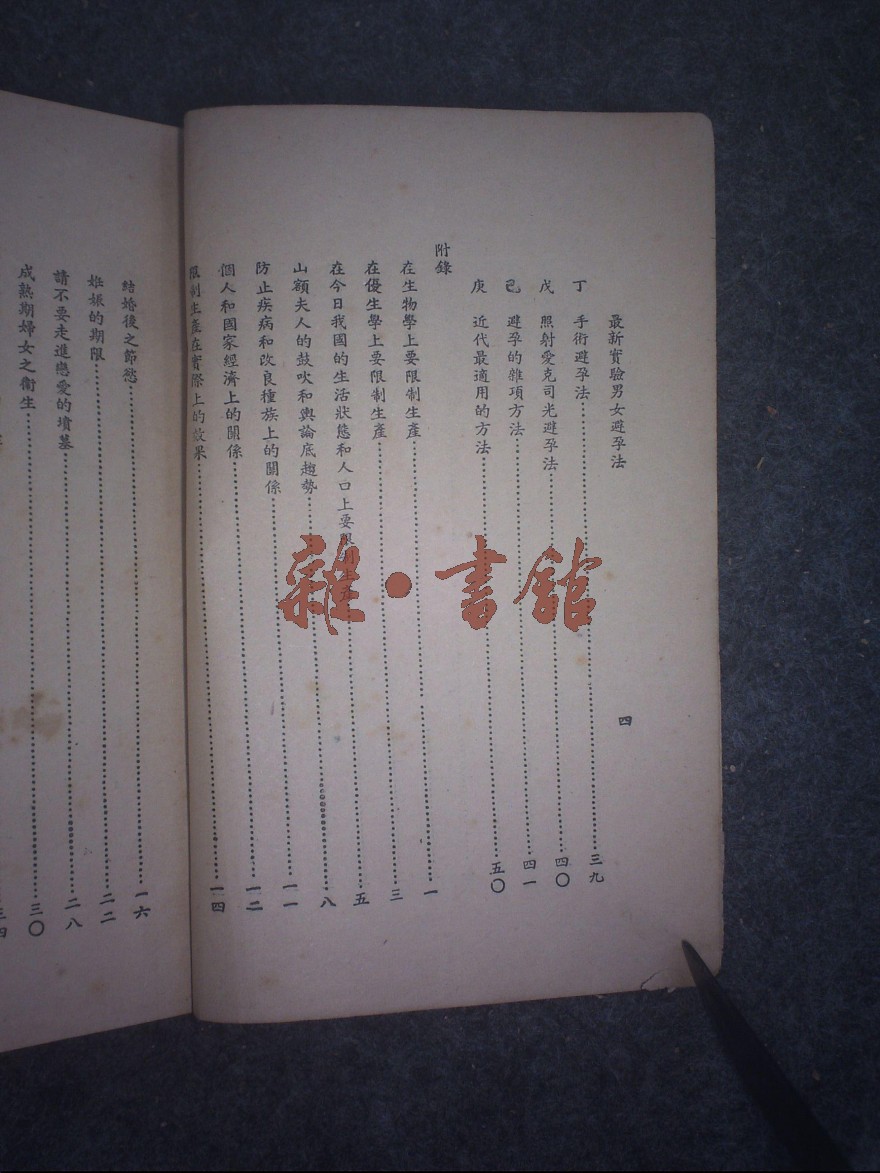 最新實驗男女避孕法 四
丁 手術避孕法……三九
戊 照射愛克司光避孕法……四〇
己 避孕的雜項方法……四一
庚 近代最適用的方法……五〇
附錄
在生物學上要限制生產……一
在優生學上要限制生產……三
在今日我國的生活狀態和人口上要限制生產……五
山額夫人的鼓吹和輿論底趨勢……八
防止疾病和改良種族上的關係……一一
個人和國家經濟上的關係……一二
限制生產在實際上的效果……一四
結婚後之節慾……一六
姙娠的期限……二二
請不要走進戀愛的墳墓……二八
成熟期婦女之衞生……三〇
三四
雜·書館